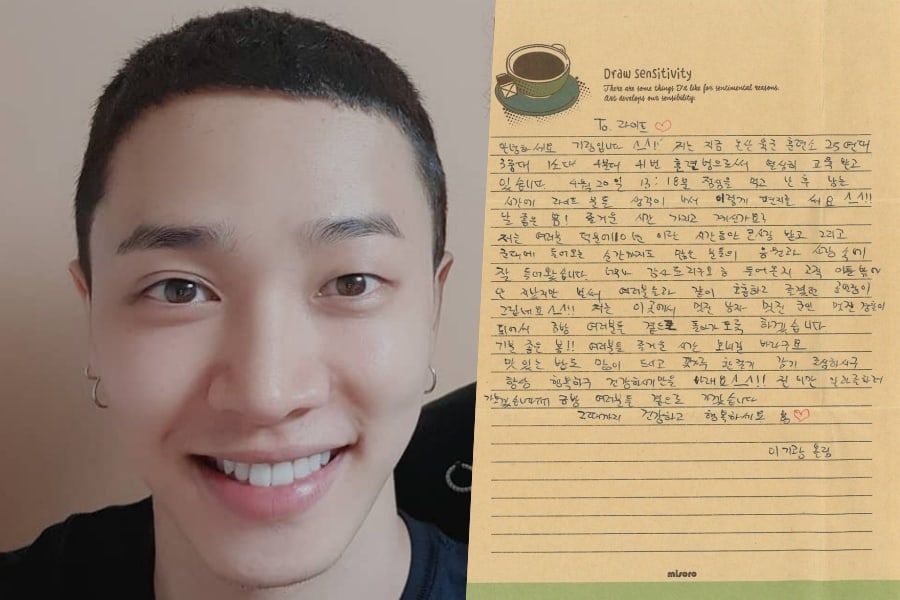 Draw Sensitivity
There are some things I'd like for sentimental reasons.
Art develops our sensibility.
To. 라이트 ♡
안녕하세요 기광입니다 ㅅ_ㅅ!! 저는 지금 논산 육군 훈련소 25연대
3중대 1소대 4분대 41번 훈련병으로써 열심히 교육 받고
있습니다 4월 20일 13:18분 점심을 먹고 난 후 남는
시간에 라이트 분들 생각이 나서 이렇게 편지를 써요 ㅅ_ㅅ!!!
날 좋은 봄! 즐거운 시간 가지고 계신가요?
저는 여러분 덕분에 10년 이란 시간동안 큰사랑 받고 그리고
군대에 들어오는 순간까지도 많은 분들의 응원과 사랑 속에
잘 들어왔습니다 너무나 감사드리구요 음 들어온지 2주
지났지만 벌써 여러분들과 같이 호흡하고 즐겼던 공연장이
그립네요 ㅅ_ㅅ!! 저는 이곳에서 멋진 남자 멋진 군인 멋진 기광이
되어서 금방 여러분들 곁으로 돌아가도록 하겠습니다
기분 좋은 봄!! 여러분들 즐거운 시간 보내길 바라구요
맛있는 밥도 많이 드시고 환절기 감기 조심하시구
항상 행복하구 건강하시기만을 바래요 ㅅ_ㅅ!!
금방 여러분들 곁으로 가겠습니다
그때까지 건강하고 행복하세요 ♡
이기광 올림
misoro